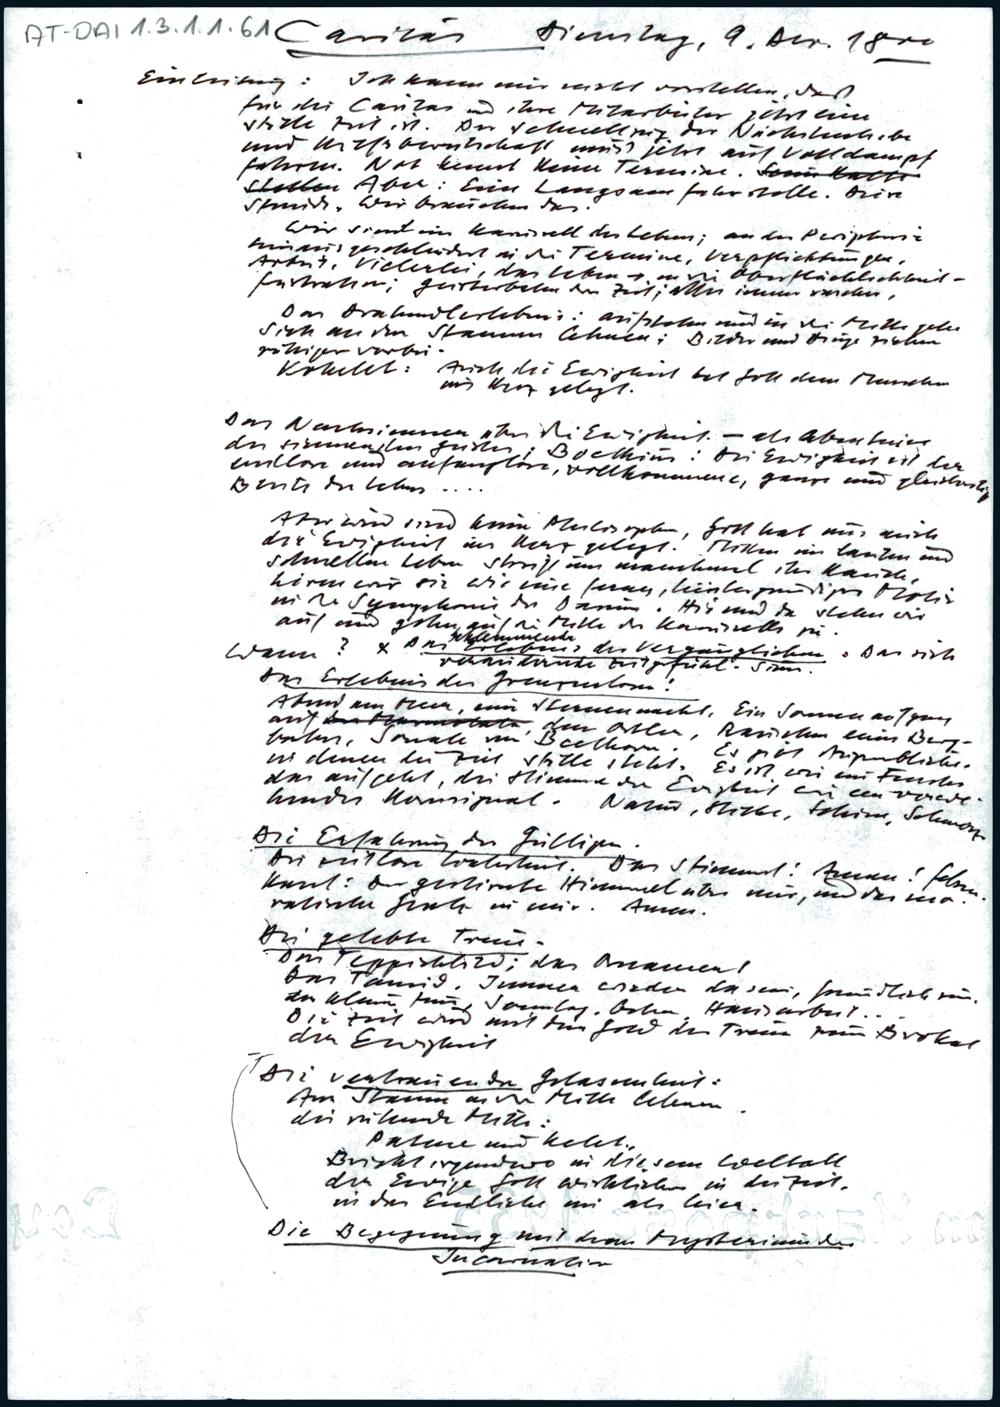 AT-DAI 1.3.1.1.61
Caritas Dienstag, 9. Dez. 18 00
Einleitung: Ich kann mir nicht vorstellen, daß
für die Caritas und ihre Mitarbeiter jetzt eine
stille Zeit ist. Der Schnellzug der Nächstenliebe
und Hilfsbereitschaft muß jetzt auf Volldampf
fahren. Not kennt keine Termine.
Aber: Eine Langsamfahrstelle. Diese
Stunde. Wir brauchen das.
Wir sind im Karussell des Lebens; an der Peripherie
hinausgeschleudert in die Termine, Verpflichtungen,
Arbeit, Vielerlei, das Leben in die Oberflächlichkeit -
Frustration; Geisterbahn der Zeit; alles immer rascher.
Das Drahndlerlebnis: aufstehen und in die Mitte gehen
sich an den Stamm lehnen; Bilder und Dinge ziehen
ruhiger vorbei.
Kohelet: Auch die Ewigkeit hat Gott dem Menschen
ins Herz gelegt.
Das Nachsinnen über die Ewigkeit - als Abenteuer
des sinnenden Geistes; Boethius: Die Ewigkeit ist der
endlose und anfanglose, vollkommene, ganze und gleichzeitige
Besitz des Lebens ....
Aber wir sind keine Philosophen, Gott hat uns auch
die Ewigkeit ins Herz gelegt. Mitten im lauten und
schnellen Leben streift uns manchmal ihr Hauch,
hören wir sie wie eine fernes, hintergründiges Motiv
in der Symphonie des Daseins. Hie und da stehen wir
auf und gehen auf die Mitte des Karussells zu.
Wann? x Das Erlebnis des Vergänglichen. Das sich
Das Erlebnis des Grenzenlosen!
Abend am Meer, eine Sternennacht. Ein Sonnenaufgang
auf dem Ortler, Rauschen eines Berg-
baches, Sonate von Beethoven. Es gibt Augenblicke.
in denen die Zeit stille steht. Es ist wie ein Fenster
das aufgeht, die Stimme der Ewigkeit wie ein
Natur, Liebe, Schmerz
Die Erfahrung des Gültigen.
Die zeitlose Wahrheit. Das Stimmt! Amen!
Kant: Der gestirnte Himmel über mir, und das mo-
ralische Gesetz in mir. Amen.
Die gelebte Treue.
Das Teppichbild; das Ornament!
Das Tamid. Immer wieder da sein, freundlich sein.
Sonntag. Hausarbeit...
Die Zeit wird mit dem Gold der Treue zum Brokat
der Ewigkeit
Die vertrauende Gelassenheit:
Am Stamm in der Mitte lehnen.
die ruhende Mitte:
Patene und Kelch.
Bricht irgendwo in diesem Weltall
der Ewige Gott wirklicher in die Zeit.
in das Endliche ein als hier.
Die Begegnung mit dem Mysterium der
Incarnation